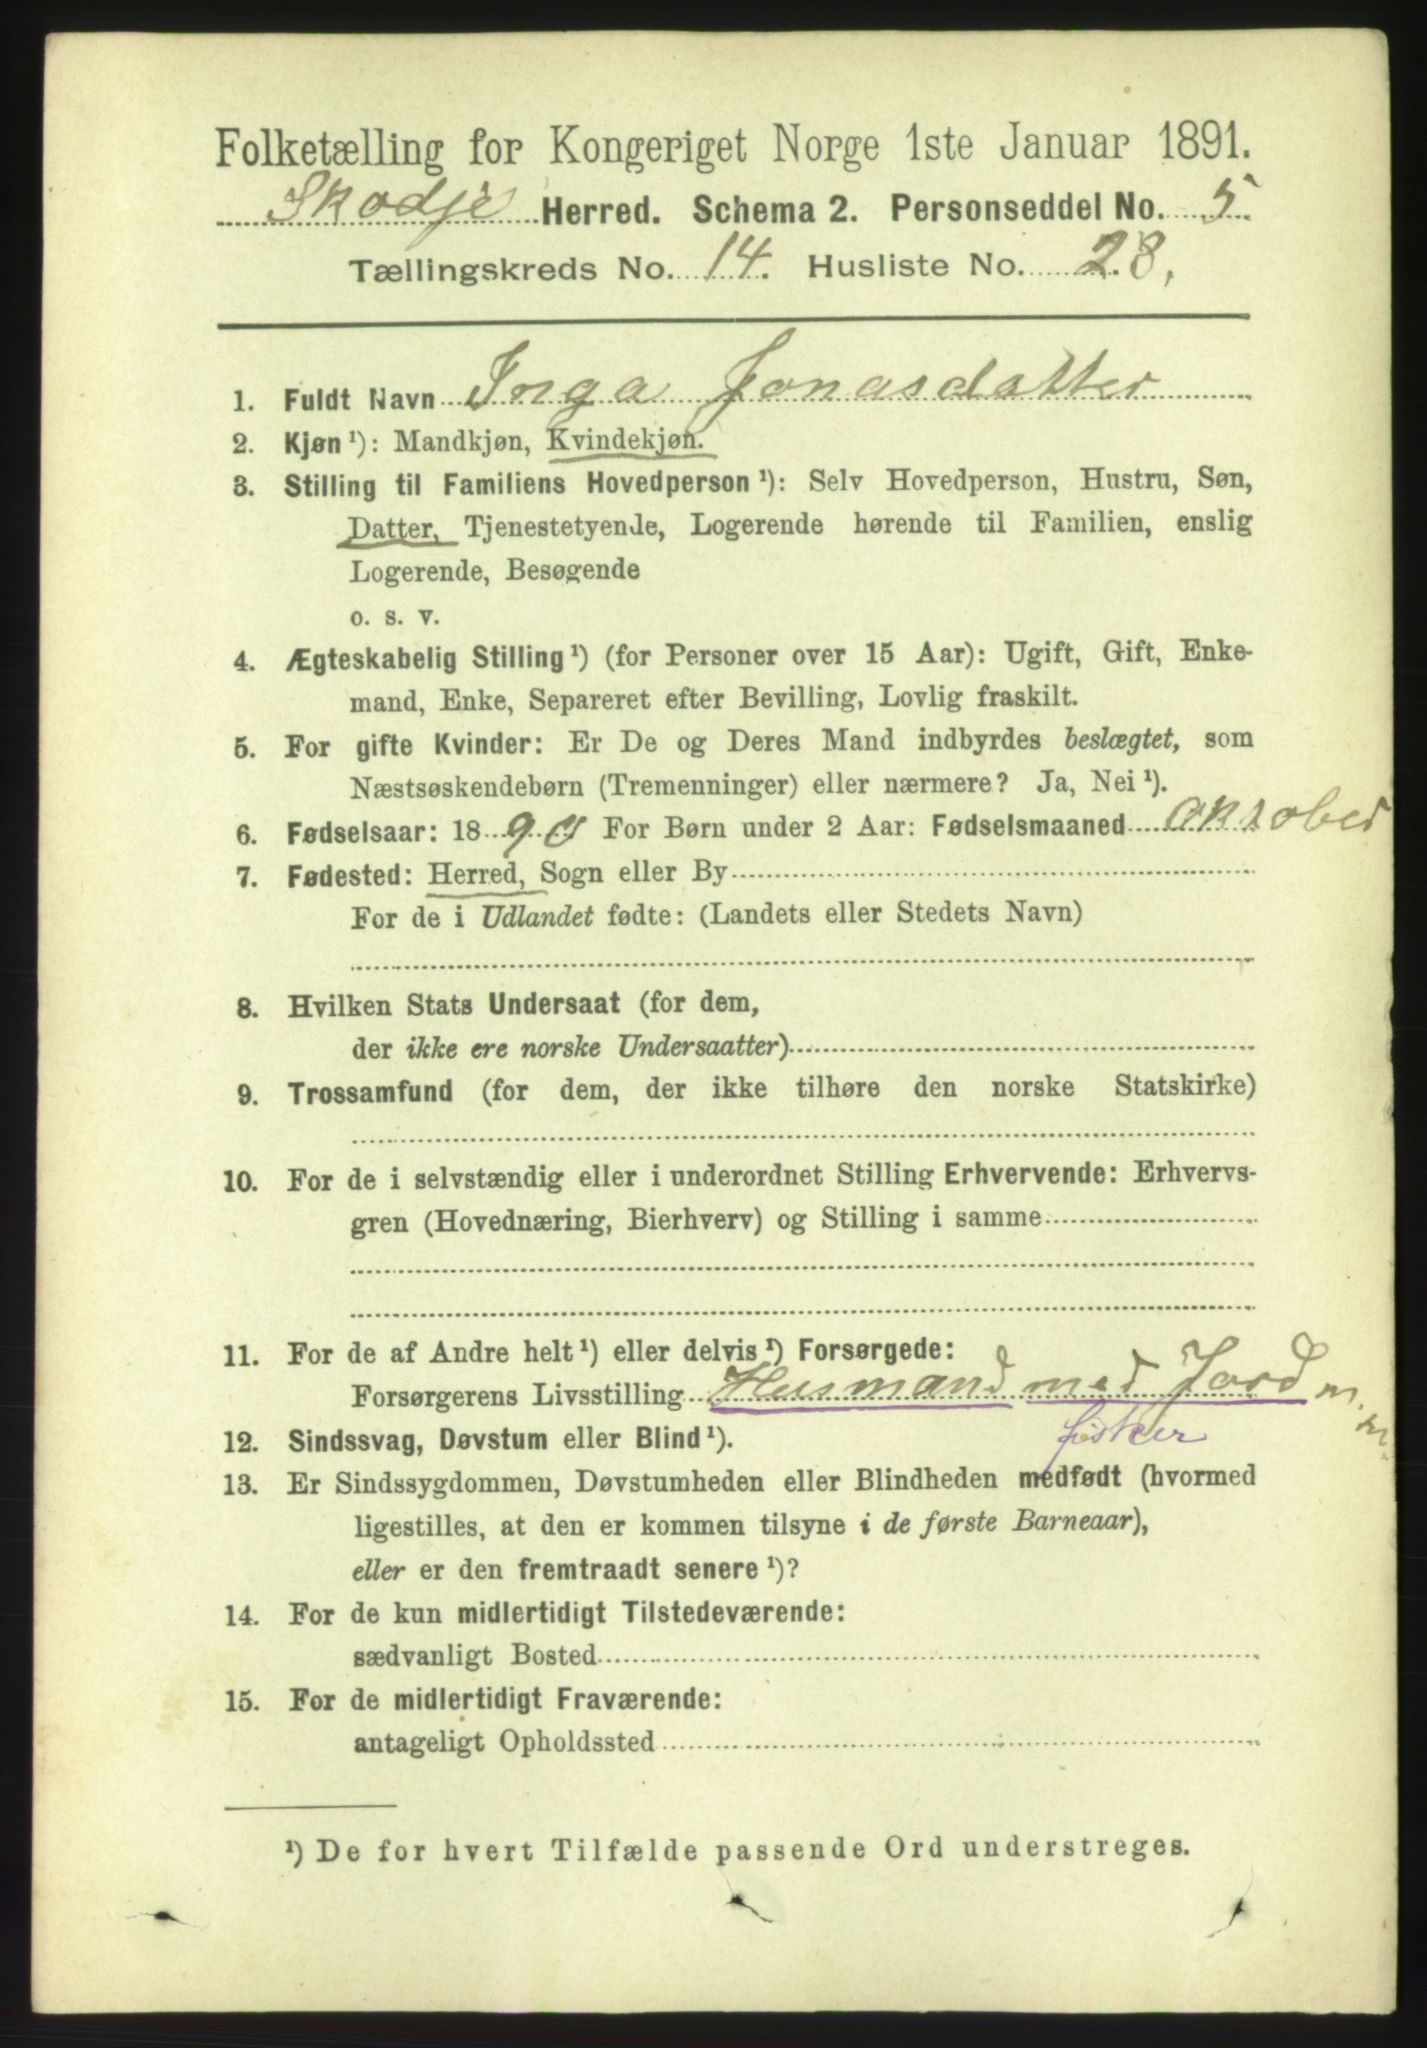 Folketælling for Kongeriget Norge 1ste Januar 1891.
Skodje Herred. Schema 2. Personseddel No. 5
Tællingskreds No. 14. Husliste No. 28.
1. Fuldt Navn Inga Jonasdatter
2. Kjøn ¹): Mandkjøn, Kvindekjøn.
3. Stilling til Familiens Hovedperson ¹): Selv Hovedperson, Hustru, Søn,
Datter, Tjenestetyende, Logerende hørende til Familien, enslig
Logerende, Besøgende
o. s. v.
4. Ægteskabelig Stilling ¹) (for Personer over 15 Aar): Ugift, Gift, Enke-
mand, Enke, Separeret efter Bevilling, Lovlig fraskilt.
5. For gifte Kvinder: Er De og Deres Mand indbyrdes beslægtet, som
Næstsøskendebørn (Tremenninger) eller nærmere? Ja, Nei ¹).
6. Fødselsaar: 1890 For Børn under 2 Aar: Fødselsmaaned Oktober
7. Fødested: Herred, Sogn eller By
For de i Udlandet fødte: (Landets eller Stedets Navn)
8. Hvilken Stats Undersaat (for dem,
der ikke ere norske Undersaatter)
9. Trossamfund (for dem, der ikke tilhøre den norske Statskirke)
10. For de i selvstændig eller i underordnet Stilling Erhvervende: Erhvervs-
gren (Hovednæring, Bierhverv) og Stilling i samme
11. For de af Andre helt ¹) eller delvis ¹) Forsørgede:
Forsørgerens Livsstilling Husmand med Jord m. m.
fisker
12. Sindssvag, Døvstum eller Blind ¹).
13. Er Sindssygdommen, Døvstumheden eller Blindheden medfødt (hvormed
ligestilles, at den er kommen tilsyne i de første Barneaar),
eller er den fremtraadt senere ¹)?
14. For de kun midlertidigt Tilstedeværende:
sædvanligt Bosted
15. For de midlertidigt Fraværende:
antageligt Opholdssted
¹) De for hvert Tilfælde passende Ord understreges.